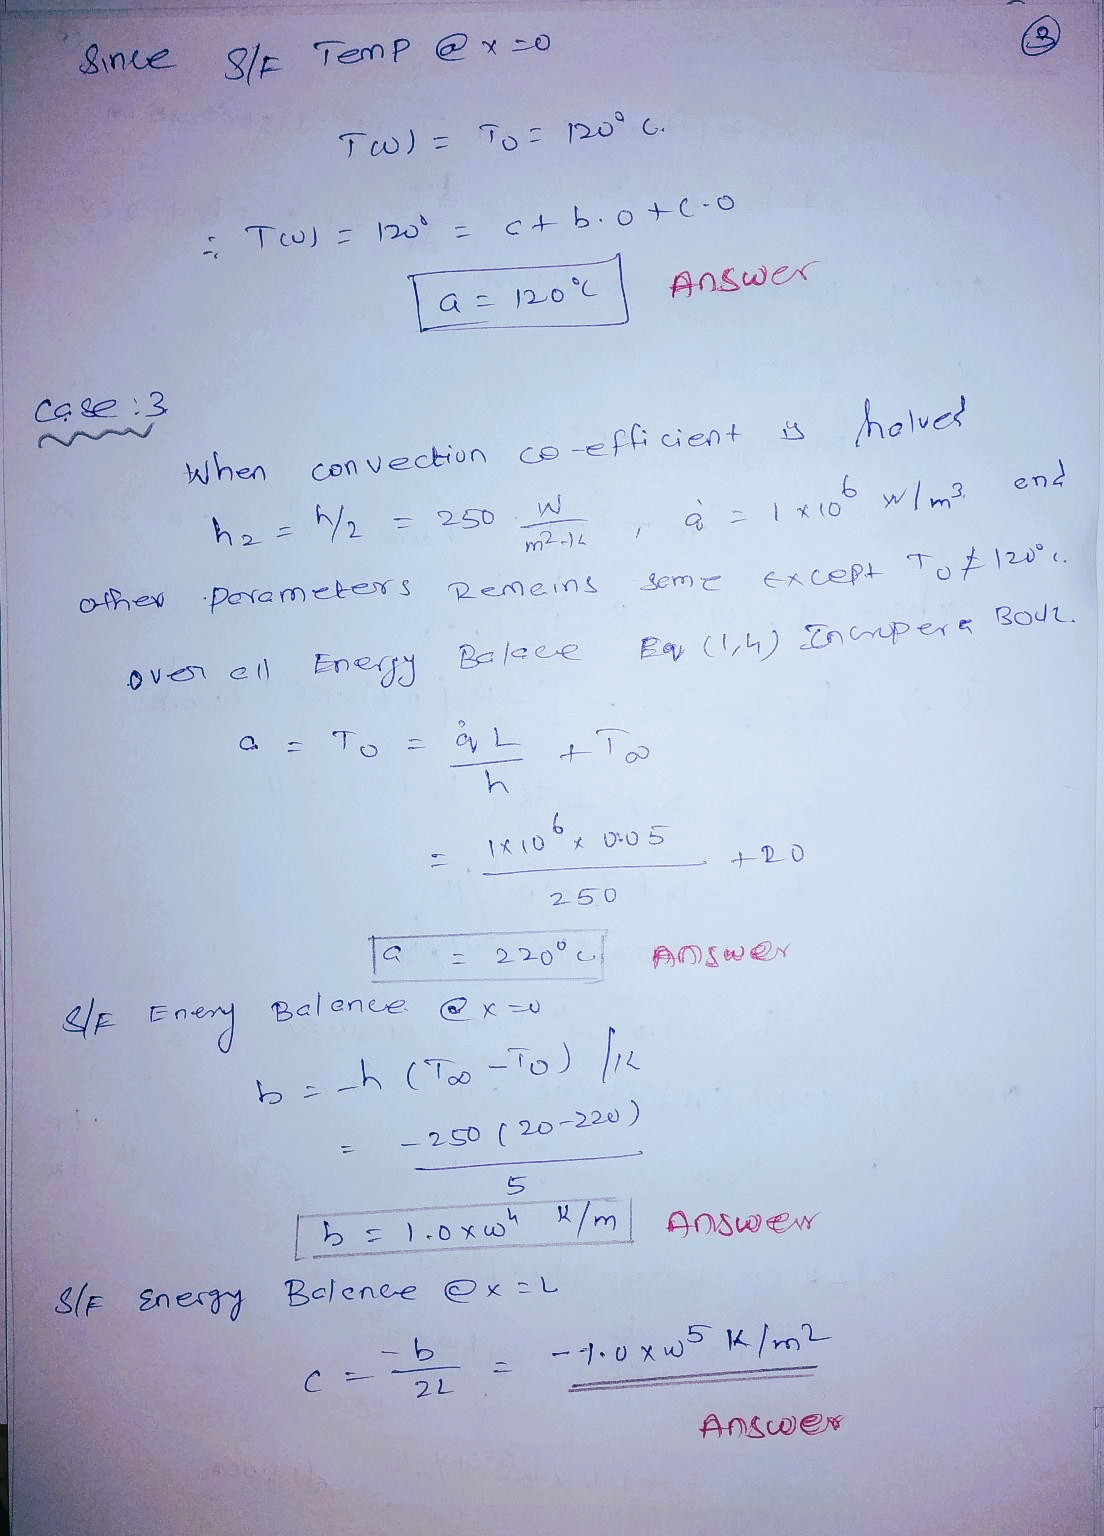 ③
Since S/F Temp @ x=0
T(0) = T0 = 120° C.
∴ T(0) = 120° = c + b.0 + c.0
a = 120°C Answer
Case : 3
When convection co-efficient is halved
h2 = h/2 = 250 W/m2-K , q̇ = 1 x 10^6 W/m3. and
other Parameters Remains same except T0 ≠ 120°C.
over all Energy Balace Eq (1,4) Incropera Book.
a = T0 = q̇ L / h + T∞
= 1x10^6 x 0.05 / 250 + 20
a = 220°C Answer
S/F Enery Balance @ x=0
b = -h (T∞ - T0) / K
= -250 (20-220) / 5
b = 1.0x10^4 K/m Answer
S/F Energy Balence @ x=L
c = -b / 2L = -1.0 x 10^5 K/m2
Answer